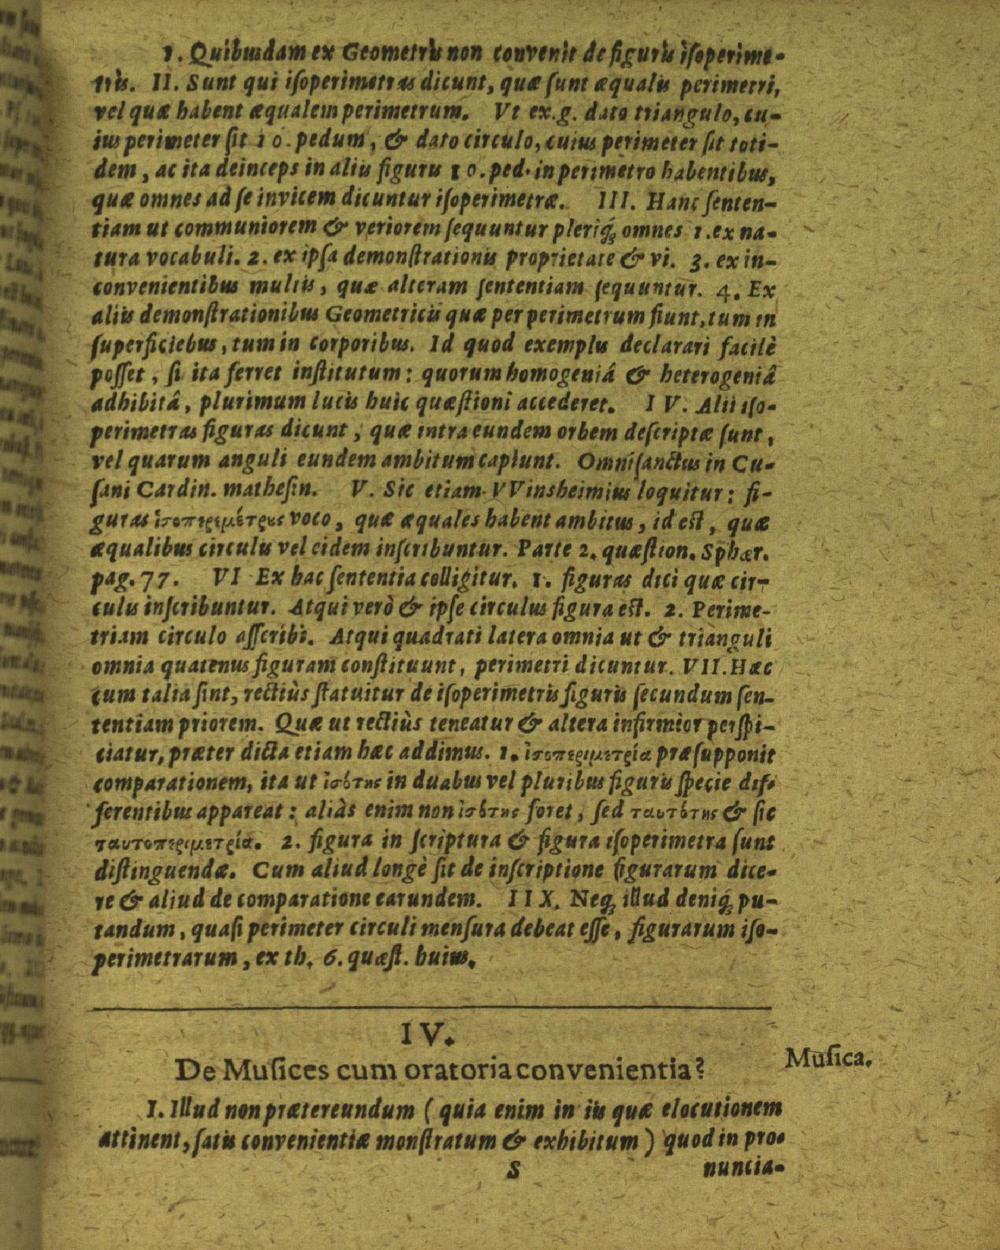 1. Quibusdam ex Geometris non convenit de figuris iſoperime-
tris. II. Sunt qui iſoperimetras dicunt, quæ ſunt æqualis perimetri,
vel quæ habent æqualem perimetrum. Vt ex.g. dato triangulo, cu-
ius perimeter ſit 10. pedum, & dato circulo, cuius perimeter ſit toti-
dem, ac ita deinceps in aliis figuris 10. ped. in perimetro habentibus,
quæ omnes ad ſe invicem dicuntur iſoperimetræ. III. Hanc ſenten-
tiam ut communiorem & veriorem ſequuntur pleriq; omnes 1. ex na-
tura vocabuli. 2. ex ipſa demonſtrationis proprietate & vi. 3. ex in-
convenientibus multis, quæ alteram ſententiam ſequuntur. 4. Ex
aliis demonſtrationibus Geometricis quæ per perimetrum fiunt, tum in
ſuperficiebus, tum in corporibus. Id quod exemplis declarari facilè
poſſet, ſi ita ferret inſtitutum: quorum homogeniâ & heterogeniâ
adhibitâ, plurimum lucis huic quæſtioni accederet. IV. Alii iſo-
perimetras figuras dicunt, quæ intra eundem orbem deſcriptæ ſunt,
vel quarum anguli eundem ambitum capiunt. Omniſanctus in Cu-
ſani Cardin. matheſin. V. Sic etiam VVinsheimius loquitur: fi-
guras ἰσοπεριμέτρης voco, quæ æquales habent ambitus, id eſt, quæ
æqualibus circulis vel eidem inſcribuntur. Parte 2. quæſtion. Sphær.
pag. 77. VI Ex hac ſententia colligitur. 1. figuras dici quæ cir-
culis inſcribuntur. Atqui verò & ipſe circulus figura eſt. 2. Perime-
triam circulo aſſcribi. Atqui quadrati latera omnia ut & trianguli
omnia quatenus figuram conſtituunt, perimetri dicuntur. VII. Hæc
cum talia ſint, rectiùs ſtatuitur de iſoperimetris figuris ſecundum ſen-
tentiam priorem. Quæ ut rectiùs teneatur & altera infirmior perſpi-
ciatur, præter dicta etiam hæc addimus. 1. ἰσοπεριμετρία præſupponit
comparationem, ita ut ἰσότης in duabus vel pluribus figuris ſpecie dif-
ferentibus appareat: aliàs enim non ἰσότης foret, ſed ταυτότης & ſic
ταυτοπεριμετρία. 2. figura in ſcriptura & figura iſoperimetra ſunt
diſtinguendæ. Cum aliud longè ſit de inſcriptione figurarum dice-
re & aliud de comparatione earundem. IIX. Neq; illud deniq; pu-
tandum, quaſi perimeter circuli menſura debeat eſſe, figurarum iſo-
perimetrarum, ex th. 6. quæſt. huius.
IV.
De Muſices cum oratoria convenientia?
Muſica.
I. Illud non prætereundum (quia enim in iis quæ elocutionem
attinent, ſatis convenientiæ monſtratum & exhibitum) quod in pro-
S
nuncia-